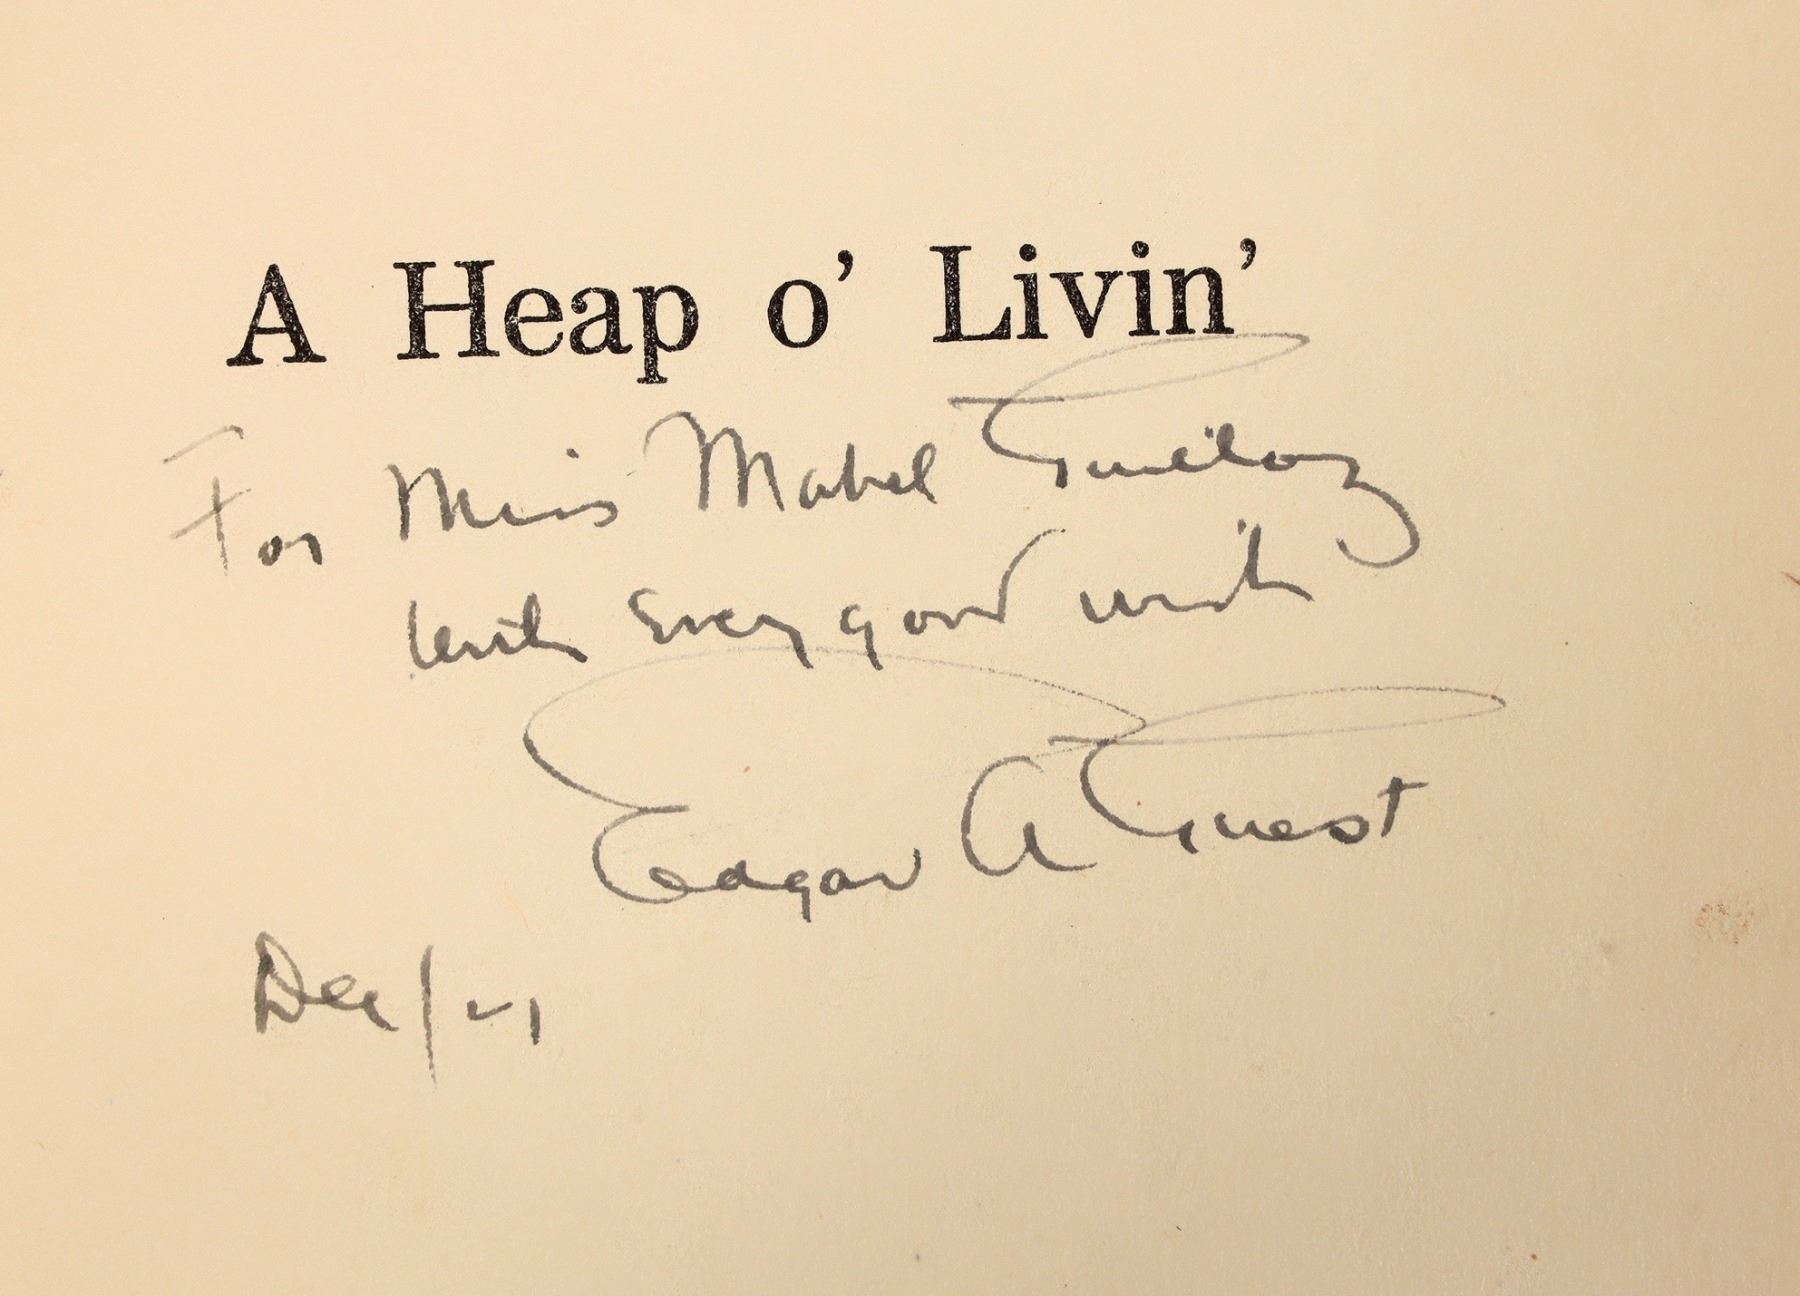 A Heap o' Livin'
For Miss Mabel
with every good wish
Edgar A Guest
Dec/21